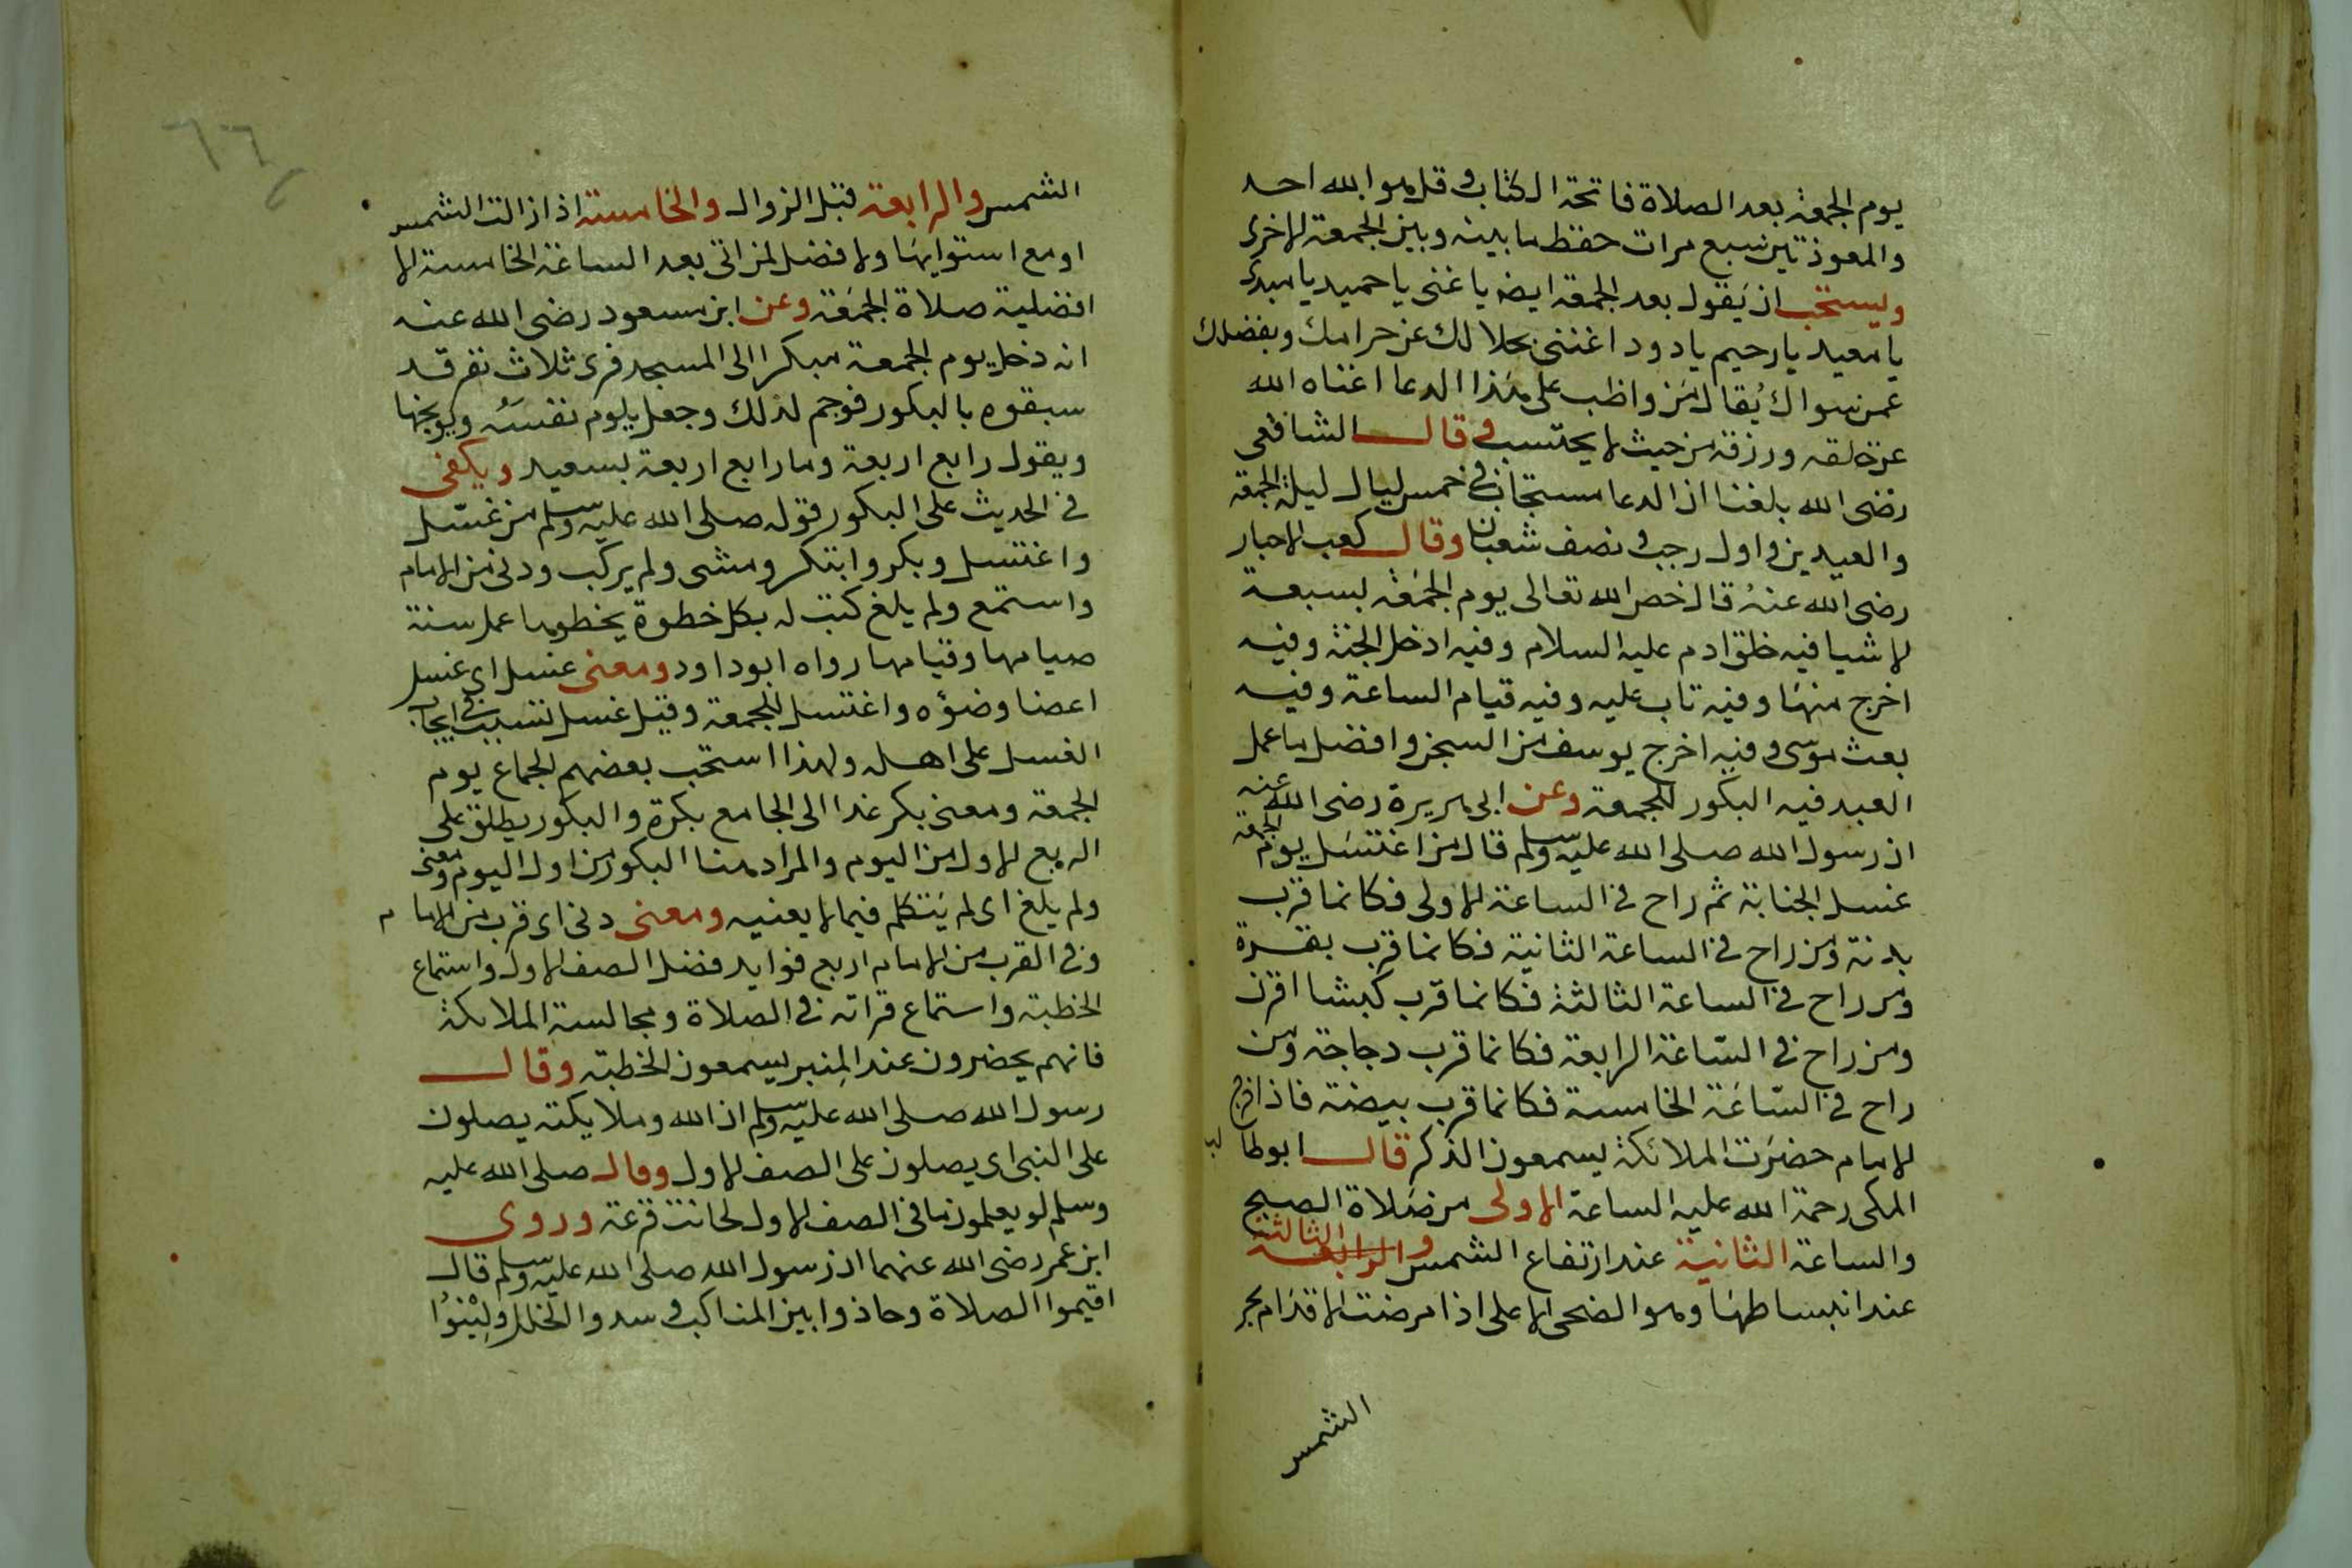 يوم الجمعة بعد الصلاة فاتحة الكتاب وقل هوا لله احد
والمعوذتين سبع مرات حفظ ما بينه وبين الجمعة الاخرى
ويستحب ان يَقول بعد الجمعة ايضا يا غنى يا حميد يا مبدى
يا معيد يا رحيم يا دود اغننى بحلالك عن حرامك وبفضلك
عمن سواك يُقال مَن واظب على هَذا الدعا اغناه الله
عن خلقه ورزقه من حيث لا يحتسب وقال الشافعى
رضى الله بلغنا ان الدعا مستجاب فى خمس ليال ليلة الجمعة
والعيدين واول رجب ونصف شعبان وقال كعب الاحبار
رضى الله عنهُ قال خص الله تعالى يوم الجمَعة بسبعة
لاشيا فيه خلق ادم عليه السلام وفيه ادخل الجنة وفيه
اخرج منهَا وفيه تاب عليه وفيه قيام الساعة وفيه
بعث موسى وفيه اخرج يوسف من السجن وافضل ما عمل
العبد فيه البكور للجمعة وعن ابى هريرة رضى الله عنه
ان رسول الله صلى الله عليه وسلم قال من اغتسَل يوم الجمعة
غسل الجنابة ثم راح فى الساعة الاولى فكانما قرب
بدنة ومن راح فى الساعة الثانية فكانما قرب بقرة
ومن راح فى الساعة الثالثة فكانما قرب كبشا اقرن
ومن راح فى السّاعة الرابعة فكانما قرب دجاجة ومن
راح فى السّاعَة الخامسة فكانما قرب بيضة فاذا خرج
الامام حضرَت الملائكة يسمعون الذكر قال ابوطالب
المكى رحمة الله عليه الساعة الاولى من صَلاة الصبح
والساعة الثانية عند ارتفاع الشمس والثالثة
عند انبساطهَا وهو الضحى الاعلى اذا مرضت الاقدَام بحر
الشمس
الشمس والرابعة قبل الزوال والخامسة اذا زالت الشمس
او مع استوايهَا ولا فضل لمن اتى بعد الساعة الخامسة الا
افضلية صلاة الجمَعة وعن ابن مسعود رضى الله عنه
انه دخل يوم الجمعة مبكرا الى المسجد فرى ثلاث نفر قد
سبقوه بالبكور فوجم لذلك وجعل يلوم نفسَهُ ويوبخها
ويقول رابع اربعة وما رابع اربعة بسعيد ويكفى
فى الحديث على البكور قوله صلى الله عليه وسلم من غسّل
واغتسل وبكر وابتكر ومشى ولم يركب ودنى من الامام
واستمع ولم يلغ كتب له بكل خطوة يخطوها عمل سنة
صيامها وقيامها رواه ابوداود ومعنى غسل اى غسل
اعضا وضوٌه واغتسل للجمعة وقيل غسل تسبب فى ايجاب
الغسل على اهله ولهذا استحب بعضهم الجماع يوم
الجمعة ومعنى بكر غدا الى الجامع بكرة والبكور يطلق على
الربع الاول من اليوم والمراد هنا البكور من اول اليوم ومعنى
ولم يلغ اى لم يَتكلم فيما لا يعنيه ومعنى دنى اى قرب من الامام
وفى القرب من الامام اربع فوايد فضل الصف الاول واستماع
الخطبة واستماع قراته فى الصلاة ومجالسة الملائكة
فانهم يحضرون عند المِنبر يسمعون الخطبة وقال
رسول الله صلى الله عليه وسلم ان الله وملايكته يصلون
على النبى اى يصلون على الصف الاول وقال صلى الله عليه
وسلم لو يعلمون ما فى الصف الاول لكانت قرعة وروى
ابن عمر رضى الله عنهما ان رسول الله صلى الله عليه وسلم قال
اقيموا الصلاة وحاذوا بين المناكب وسدوا الخلل ولِيْنوُا